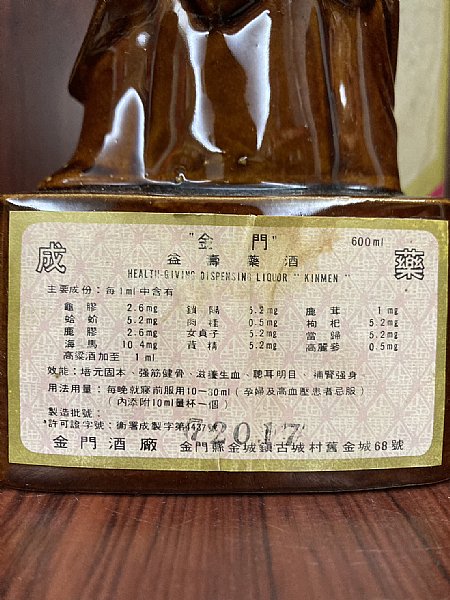 "金門" 600ml
成 益壽藥酒 藥
HEALTH-GIVING DISPENSING LIQUOR "KINMEN"
主要成份：每1ml中含有
龜膠 2.6mg 鎖陽 5.2mg 鹿茸 1mg
蛤蚧 5.2mg 肉桂 0.5mg 枸杞 5.2mg
鹿膠 2.6mg 女貞子 5.2mg 當歸 5.2mg
海馬 10.4mg 黃精 5.2mg 高麗參 0.5mg
高粱酒加至 1ml
效能：培元固本、強筋健骨、滋養生血、聰耳明目、補腎強身
用法用量：每晚就寢前服用10-30ml（孕婦及高血壓患者忌服）
（內添附10ml量杯一個）
製造批號：
許可證字號：衛署成製字第4437 72017
金門酒廠 金門縣金城鎮古城村舊金城68號